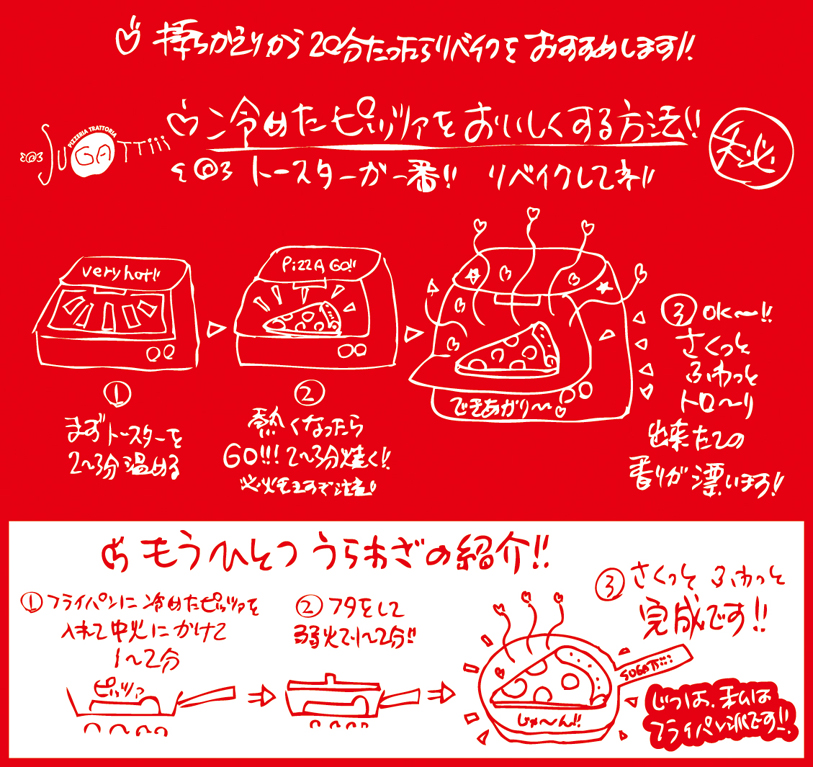 持ちかえりから20分たったらリベイクをおすすめします!!
PIZZERIA TRATTORIA
SUGATTiii
冷めたピッツァをおいしくする方法!!
秘
トースターが一番!! リベイクしてネ!!
very hot!!
PiZZA GO!!
①
まずトースターを
2〜3分温める
②
熱くなったら
GO!!! 2〜3分焼く!!
できあがり〜
③ OK〜!!
さくっと
ふわっと
トロ〜リ
出来たての
香りが漂います!!
もうひとつうらわざの紹介!!
① フライパンに冷めたピッツァを
入れて中火にかけて
1〜2分
ピッツァ
② フタをして
弱火で1〜2分!!
③ さくっと ふわっと
完成です!!
SUGATTiii
じゃ〜ん!!
じつは、私は
フライパン派です!!